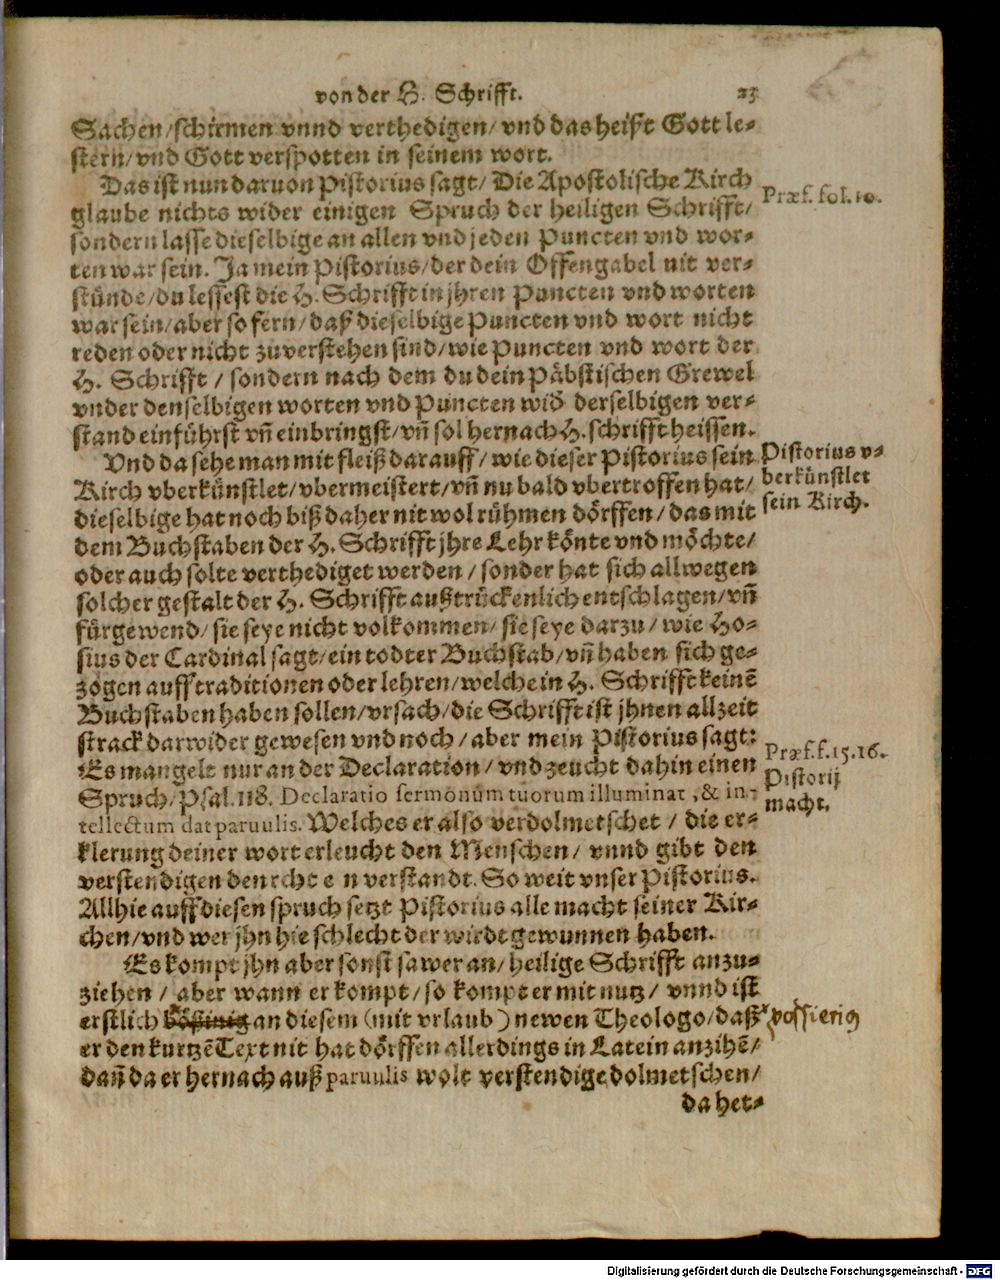 von der H. Schrifft. 23
Sachen/schirmen vnnd verthedigen/ vnd das heißt Gott le-
stern/ vnd Gott verspotten in seinem wort.
Das ist nun daruon Pistorius sagt/ Die Apostolische Kirch
glaube nichts wider einigen Spruch der heiligen Schrifft/
sondern lasse dieselbige an allen vnd jeden Puncten vnd wor-
ten war sein. Ja mein Pistorius/ der dein Offengabel nit ver-
stünde/ du lessest die H. Schrifft in jhren Puncten vnd worten
war sein/ aber so fern/ daß dieselbige Puncten vnd wort nicht
reden oder nicht zuverstehen sind/ wie Puncten vnd wort der
H. Schrifft / sondern nach dem du dein Päbstischen Grewel
vnder denselbigen worten vnd Puncten wid̄ derselbigen ver-
stand einführst vñ einbringst/ vñ sol hernach H. schrifft heissen.
Vnd da sehe man mit fleiß darauff/ wie dieser Pistorius sein
Kirch vberkünstlet/ vbermeistert/ vñ nu bald vbertroffen hat/
dieselbige hat noch biß daher nit wol rühmen dörffen/ das mit
dem Buchstaben der H. Schrifft jhre Lehr könte vnd möchte/
oder auch solte verthediget werden / sonder hat sich allwegen
solcher gestalt der H. Schrifft außtrückenlich entschlagen/ vñ
fürgewend/ sie seye nicht volkommen/ sie seye darzu/ wie Ho-
sius der Cardinal sagt/ ein todter Buchstab/ vñ haben sich ge-
zogen auff traditionen oder lehren/ welche in H. Schrifft keinē
Buchstaben haben sollen/ vrsach/ die Schrifft ist jhnen allzeit
strack darwider gewesen vnd noch / aber mein Pistorius sagt:
Es mangelt nur an der Declaration/ vnd zeucht dahin einen
Spruch/ Psal. 118. Declaratio sermonum tuorum illuminat, & in-
tellectum dat paruulis. Welches er also verdolmetschet / die er-
klerung deiner wort erleucht den Menschen/ vnnd gibt den
verstendigen den rchte n verstandt. So weit vnser Pistorius.
Allhie auff diesen spruch setzt Pistorius alle macht seiner Kir-
chen/ vnd wer jhn hie schlecht der wirdt gewunnen haben.
Es kompt jhn aber sonst sawer an/ heilige Schrifft anzu-
ziehen / aber wann er kompt/ so kompt er mit nutz/ vnnd ist
erstlich an diesem (mit vrlaub) newen Theologo/ daß
er den kurtzē Text nit hat dörffen allerdings in Latein anzihē/
dañ da er hernach auß paruulis wolt verstendige dolmetschen/
da het-
Præf. fol. 10.
Pistorius v-
berkünstlet
sein Kirch.
Præf. f. 15. 16.
Pistorij
macht.
possierig
Digitalisierung gefördert durch die Deutsche Forschungsgemeinschaft - DFG